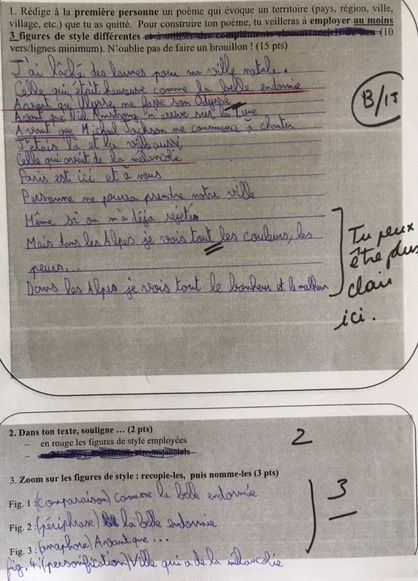 1. Rédige à la première personne un poème qui évoque un territoire (pays, région, ville,
village, etc.) que tu as quitté. Pour construire ton poème, tu veilleras à employer au moins
3 figures de style différentes et à utiliser des compléments circonstanciels de lieu (10
vers/lignes minimum). N'oublie pas de faire un brouillon ! (15 pts)
J'ai lâché des larmes pour ma ville natale.
Celle qui était heureuse comme la belle endormie
Avant qu'Ulysse ne fasse son
Avant que Neil Armstrong n'arrive sur la Lune
Avant que Michael Jackson ne commence à chanter
J'étais là et la ville aussi,
Celle qui avait de la mélancolie
Paris est ici et à nous
Personne ne pourra prendre notre ville
Même si on m'a déja rejeté
Mais dans les Alpes je vois tout les couleurs, les
peurs...
Dans les Alpes je vois tout le bonheur et le malheur
13/15
Tu peux
être plus
clair
ici.
2. Dans ton texte, souligne ... (2 pts)
– en rouge les figures de style employées
2
3. Zoom sur les figures de style : recopie-les, puis nomme-les (3 pts)
Fig. 1 : (Comparaison) Comme la belle endormie
Fig. 2 : (périphrase) la belle endormie
Fig. 3 : (anaphore) Avant que ...
fig. 4 : (personification) Ville qui a de la mélancolie
3